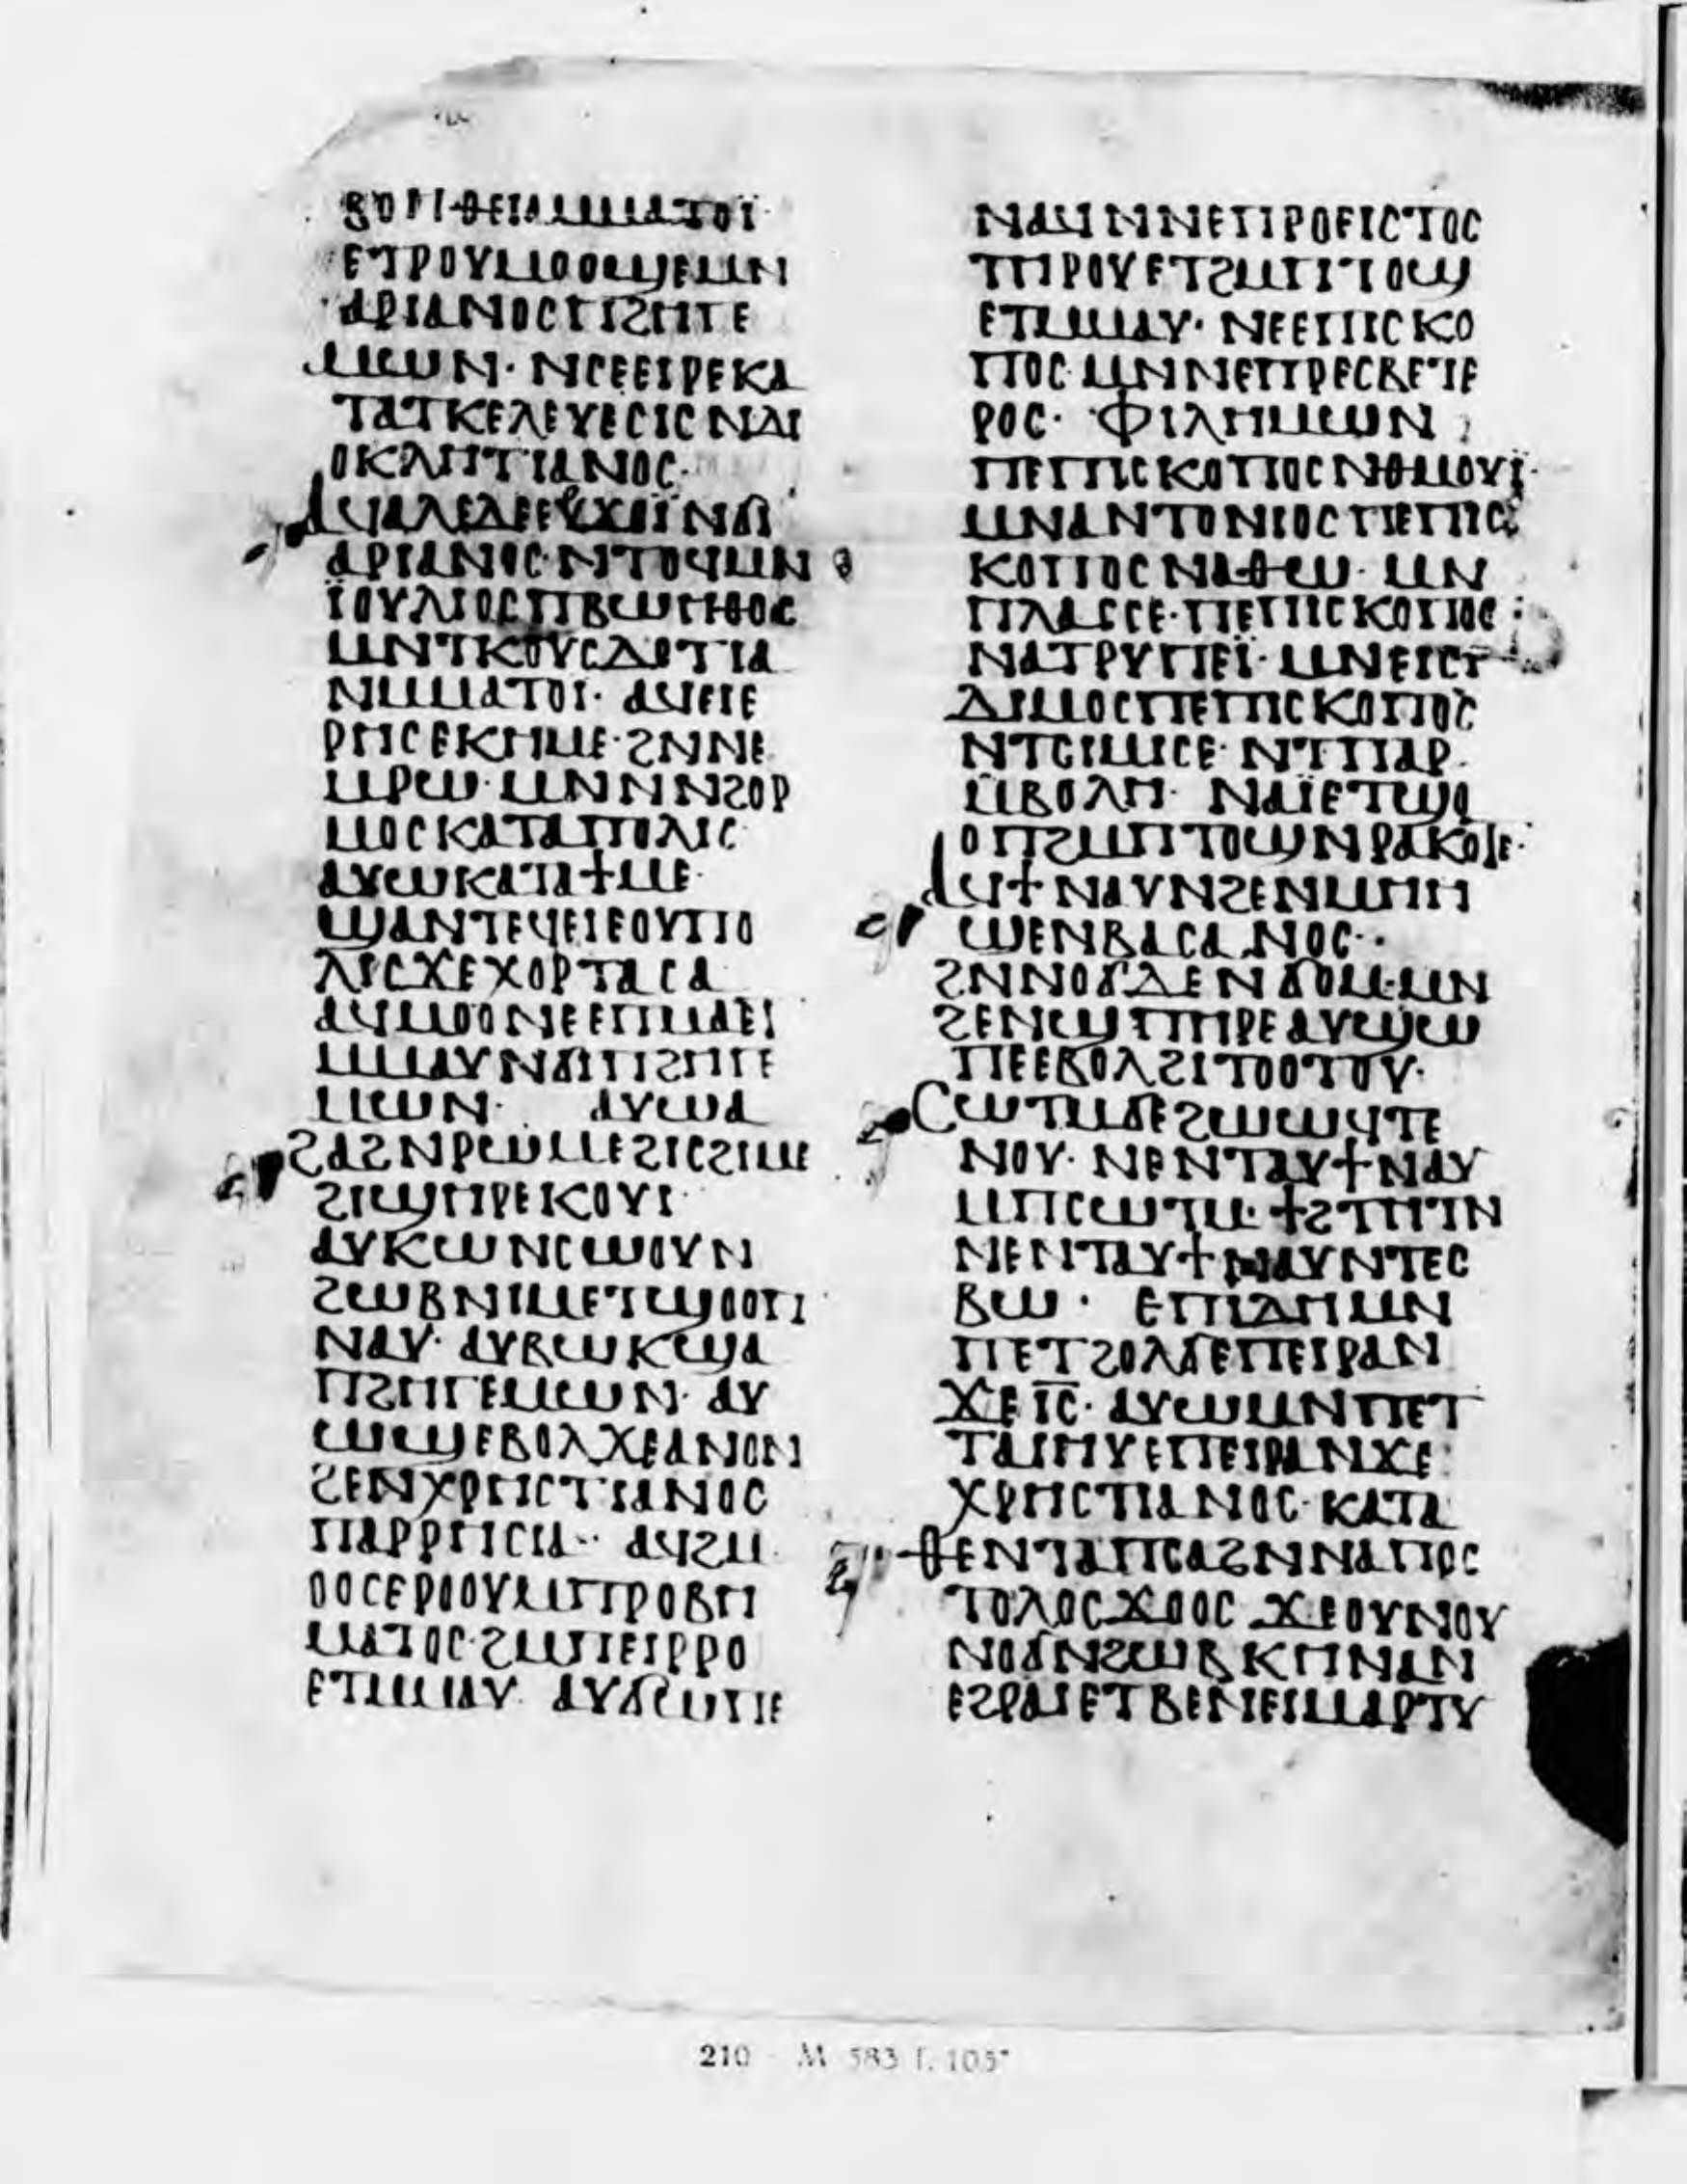 ⲃⲟⲏⲑⲉⲓⲁⲙⲙⲁⲧⲟⲓ
ⲉⲧⲣⲟⲩⲙⲟⲟϣⲉⲙⲛ
ⲁⲣⲓⲁⲛⲟⲥⲡϩⲏⲅⲉ
ⲙⲱⲛ· ⲛⲥⲉⲉⲓⲣⲉⲕⲁ
ⲧⲁⲧⲕⲉⲗⲉⲩⲉⲥⲓⲥ ⲛⲇⲓ
ⲟⲕⲗⲏⲧⲓⲁⲛⲟⲥ·
ⲁϥⲁⲗⲉⲇⲉⲉⲩϫⲟⲓ̈ ⲛϭⲓ
ⲁⲣⲓⲁⲛⲟⲥ· ⲛⲧⲟϥⲙⲛ
ⲓ̈ⲟⲩⲗⲓⲟⲥⲡⲃⲱⲏⲑⲟⲥ
ⲙⲛⲧⲕⲟⲩⲥⲇⲟⲧⲓⲁ
ⲛⲙⲙⲁⲧⲟⲓ· ⲁϥⲉⲓⲉ
ⲣⲏⲥ ⲉⲕⲏⲙⲉ· ϩⲛⲛⲉ
ⲙⲣⲱ· ⲙⲛⲛⲛϩⲟⲣ
ⲙⲟⲥ ⲕⲁⲧⲁⲡⲟⲗⲓⲥ
ⲁⲩⲱⲕⲁⲧⲁϯⲙⲉ·
ϣⲁⲛⲧⲉϥⲉⲓⲉⲟⲩⲡⲟ
ⲗⲓⲥϫⲉⲭⲟⲣⲧⲁⲥⲁ
ⲁϥⲙⲟⲟⲛⲉⲉⲡⲙⲁⲉⲓ
ⲙⲙⲁⲩ ⲛϭⲓⲡϩⲏⲅⲉ
ⲙⲱⲛ· ⲁⲩⲱⲁ
ϩⲁϩ ⲛⲣⲱⲙⲉϩⲓⲥϩⲓⲙⲉ
ϩⲓϣⲏⲣⲉⲕⲟⲩⲓ·
ⲁⲩⲕⲱ ⲛⲥⲱⲟⲩⲛ
ϩⲱⲃ ⲛⲓⲙⲉⲧϣⲟⲟⲡ
ⲛⲁⲩ· ⲁⲩⲃⲱⲕϣⲁ
ⲡϩⲏⲅⲉⲙⲱⲛ· ⲁⲩ
ⲱϣⲉⲃⲟⲗϫⲉⲁⲛⲟⲛ
ϩⲉⲛⲭⲣⲏⲥⲧⲓⲁⲛⲟⲥ
ⲡⲁⲣⲣⲏⲥⲓⲁ·· ⲁϥϩⲙ
ⲟⲟⲥ ⲉⲣⲟⲟⲩⲙⲡⲣⲟⲃⲏ
ⲙⲁⲧⲟⲥ· ϩⲙⲡⲉⲓⲣⲣⲟ
ⲉⲧⲙⲙⲁⲩ ⲁⲩϭⲱⲡⲉ
ⲛⲁϥ ⲛⲛⲉⲡⲣⲟⲉⲓⲥⲧⲟⲥ
ⲧⲏⲣⲟⲩ ⲉⲧϩⲙⲡⲧⲟϣ
ⲉⲧⲙⲙⲁⲩ· ⲛⲉⲉⲡⲓⲥⲕⲟ
ⲡⲟⲥ· ⲙⲛⲛⲉⲡⲣⲉⲥⲃⲉⲧⲉ
ⲣⲟⲥ· ⲫⲓⲗⲏⲙⲱⲛ
ⲡⲉⲡⲓⲥⲕⲟⲡⲟⲥ ⲛⲑⲙⲟⲩⲓ̈·
ⲙⲛⲁⲛⲧⲟⲛⲓⲟⲥ ⲡⲉⲡⲓⲥ
ⲕⲟⲡⲟⲥ ⲛⲁⲑⲱ· ⲙⲛ
ⲡⲗⲁⲥⲥⲉ· ⲡⲉⲡⲓⲥⲕⲟⲡⲟⲥ
ⲛⲁⲧⲣⲩⲡⲉⲓ̈· ⲙⲛⲉⲓⲥⲓ
ⲇⲓⲙⲟⲥ ⲡⲉⲡⲓⲥⲕⲟⲡⲟⲥ
ⲛⲧϭⲓⲙⲓⲥⲉ· ⲛⲧⲡⲁⲣ
ⲙⲃⲟⲗⲏ· ⲛⲁⲓ̈ⲉⲧϣⲟ
ⲟⲡϩⲙⲡⲧⲟϣ ⲛⲣⲁⲕⲟⲧⲉ·
ⲁϥϯ ⲛⲁⲩ ⲛϩⲉⲛⲙⲏⲏ
ϣⲉ ⲛⲃⲁⲥⲁⲛⲟⲥ··
ϩⲛⲛⲟϭⲇⲉ ⲛϭⲟⲙ· ⲙⲛ
ϩⲉⲛϣⲡⲏⲣⲉ ⲁⲩϣⲱ
ⲡⲉ ⲉⲃⲟⲗϩⲓⲧⲟⲟⲧⲟⲩ·
ⲥⲱⲧⲙϭⲉ ϩⲱⲱϥⲧⲉ
ⲛⲟⲩ· ⲛⲉⲛⲧⲁⲩϯ ⲛⲁⲩ
ⲙⲡⲥⲱⲧⲙ· ϯϩⲧⲏⲧⲛ
ⲛⲉⲛⲧⲁⲩϯ ⲛⲁⲩ ⲛⲧⲉⲥ
ⲃⲱ· ⲉⲡⲓⲇⲏ ⲙⲛ
ⲡⲉⲧϩⲟⲗϭ ⲉⲡⲉⲓⲣⲁⲛ
ϫⲉ ⲓ̅ⲥ̅· ⲁⲩⲱ ⲙⲛⲡⲉⲧ
ⲧⲁⲓⲏⲩ ⲉⲡⲉⲓⲣⲁⲛ ϫⲉ
ⲭⲣⲏⲥⲧⲓⲁⲛⲟⲥ· ⲕⲁⲧⲁ
ⲑⲉ ⲛⲧⲁⲡⲥⲁϩ ⲛⲛⲁⲡⲟⲥ
ⲧⲟⲗⲟⲥ ϫⲟⲟⲥ ϫⲉⲟⲩⲛⲟⲩ
ⲛⲟϭ ⲛϩⲱⲃ ⲕⲏ ⲛⲁⲛ
ⲉϩⲣⲁⲓ ⲉⲧⲃⲉⲛⲉⲓⲙⲁⲣⲧⲩ
210 M 583 f. 105